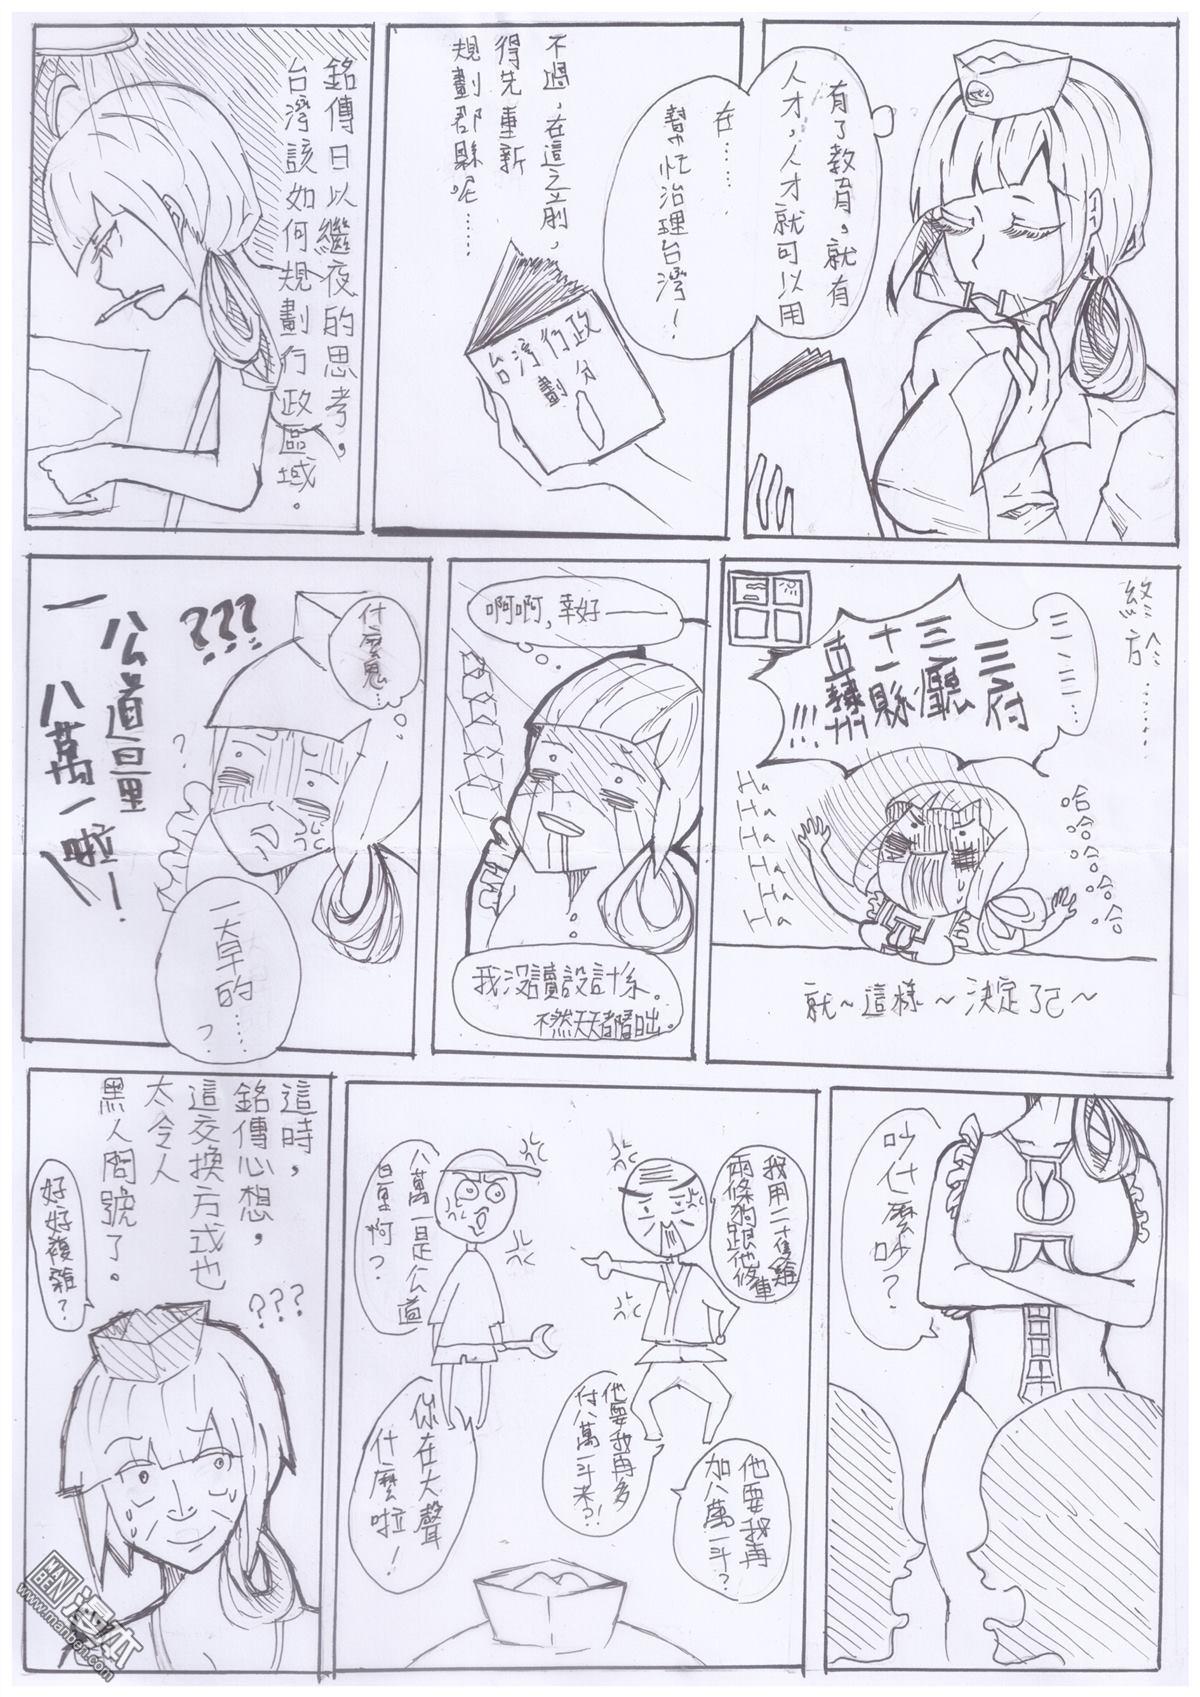 有了教育，就有
人才，人才就可以用
在……
幫忙治理台灣！
不過，在這之前，
得先重新
規劃郡縣呢……
台灣行政
劃分
銘傳日以繼夜的思考，
台灣該如何規劃行政區域。
終於……
三、三…
三府
三廳
十一縣
直隸州
!!!
哈哈哈哈哈
Ha
Ha
Ha
Ha
Ha
Ha
就～這樣～決定了己～
啊啊，幸好——
我沒讀設計系。
不然天天都看日出。
什麼鬼…
???
一公道量
八萬一啦！
一大早的……
？
吵什麼吵？
我用二十隻雞
兩條狗跟他修車
八萬一是公道
量啊？
他要我再多
付八萬一斗米?!
他要我再
加八萬一斗？
你在大聲
什麼啦！
這時，
銘傳心想，
這交換方式也
太令人
黑人問號了。
好好複雜？
???
漫本
www.manben.com